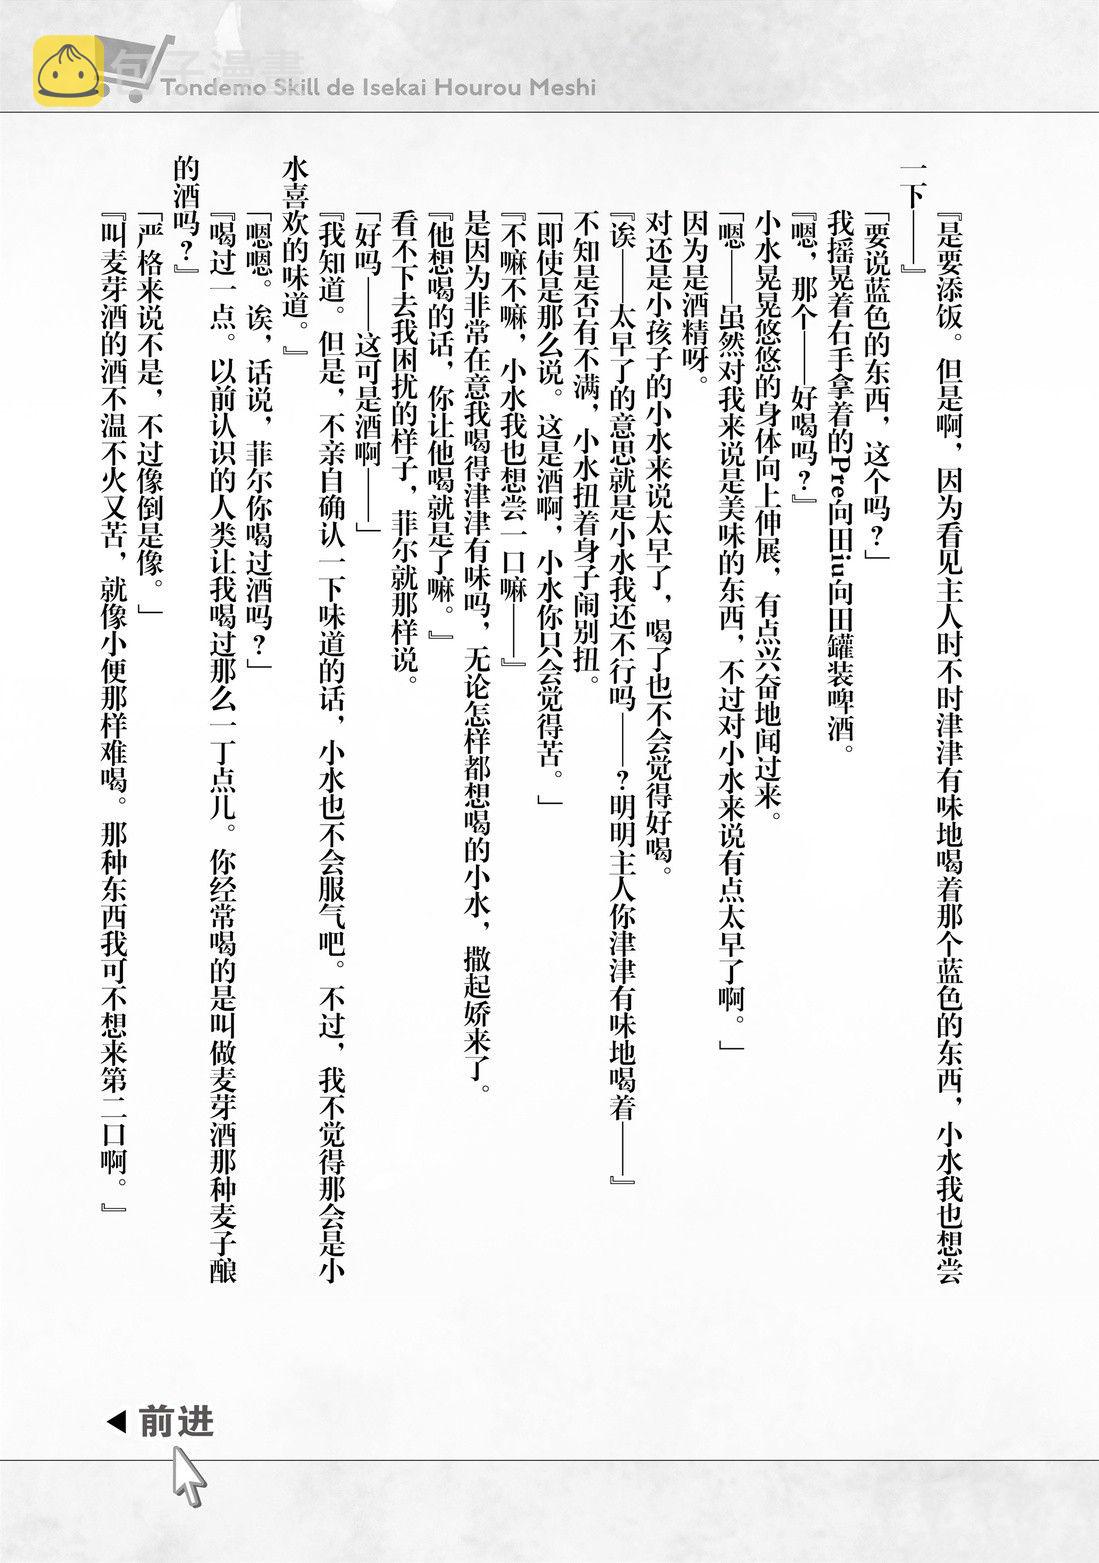 包子漫畫
Tondemo Skill de Isekai Hourou Meshi
『是要添饭。但是啊，因为看见主人时不时津津有味地喝着那个蓝色的东西，小水我也想尝
一下——』
「要说蓝色的东西，这个吗？」
我摇晃着右手拿着的Pre向田iu向田罐装啤酒。
『嗯，那个——好喝吗？』
小水晃晃悠悠的身体向上伸展，有点兴奋地闻过来。
「嗯——虽然对我来说是美味的东西，不过对小水来说有点太早了啊。」
因为是酒精呀。
对还是小孩子的小水来说太早了，喝了也不会觉得好喝。
『诶——太早了的意思就是小水我还不行吗——？明明主人你津津有味地喝着——』
不知是否有不满，小水扭着身子闹别扭。
「即使是那么说。这是酒啊，小水你只会觉得苦。」
『不嘛不嘛，小水我也想尝一口嘛——』
是因为非常在意我喝得津津有味吗，无论怎样都想喝的小水，撒起娇来了。
『他想喝的话，你让他喝就是了嘛。』
看不下去我困扰的样子，菲尔就那样说。
「好吗——这可是酒啊——」
『我知道。但是，不亲自确认一下味道的话，小水也不会服气吧。不过，我不觉得那会是小
水喜欢的味道。』
「嗯嗯。诶，话说，菲尔你喝过酒吗？」
『喝过一点。以前认识的人类让我喝过那么一丁点儿。你经常喝的是叫做麦芽酒那种麦子酿
的酒吗？』
「严格来说不是，不过像倒是像。」
『叫麦芽酒的酒不温不火又苦，就像小便那样难喝。那种东西我可不想来第二口啊。』
前进